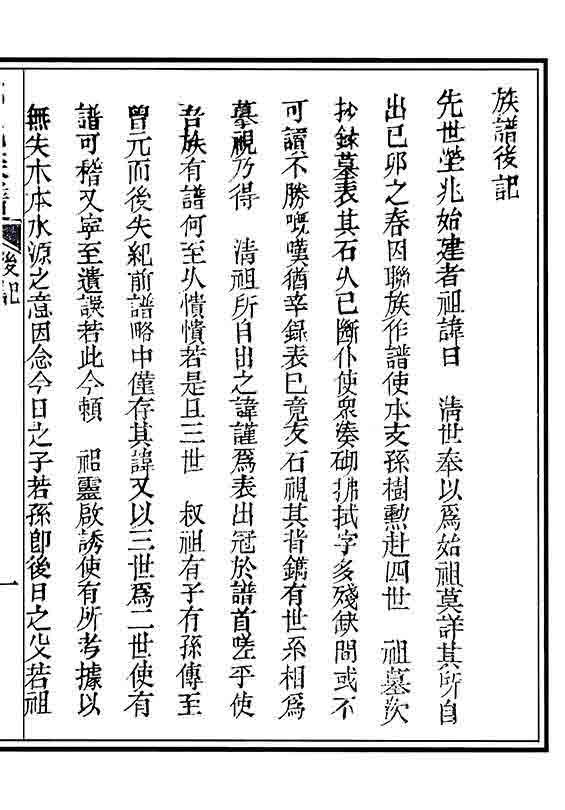 族譜後記
先世塋兆始建者祖諱曰　清世奉以爲始祖莫詳其所自
出已卯之春因聯族作譜使本支孫樹勲赴四世　祖墓次
抄録墓表其石久已斷仆使衆湊砌拂拭字多殘缺間或不
可讀不勝嘅嘆猶幸録表已竟反石視其背鐫有世系相爲
摹視乃得　清祖所自出之諱謹爲表出冠於譜首嗟乎使
吾族有譜何至久憒憒若是且三世　叔祖有子有孫傳至
曾元而後失紀前譜略中僅存其諱又以三世爲二世使有
譜可稽又寧至遺誤若此今頼　祖靈啟誘使有所考據以
無失木本水源之意因念今日之子若孫卽後日之父若祖
後記
一